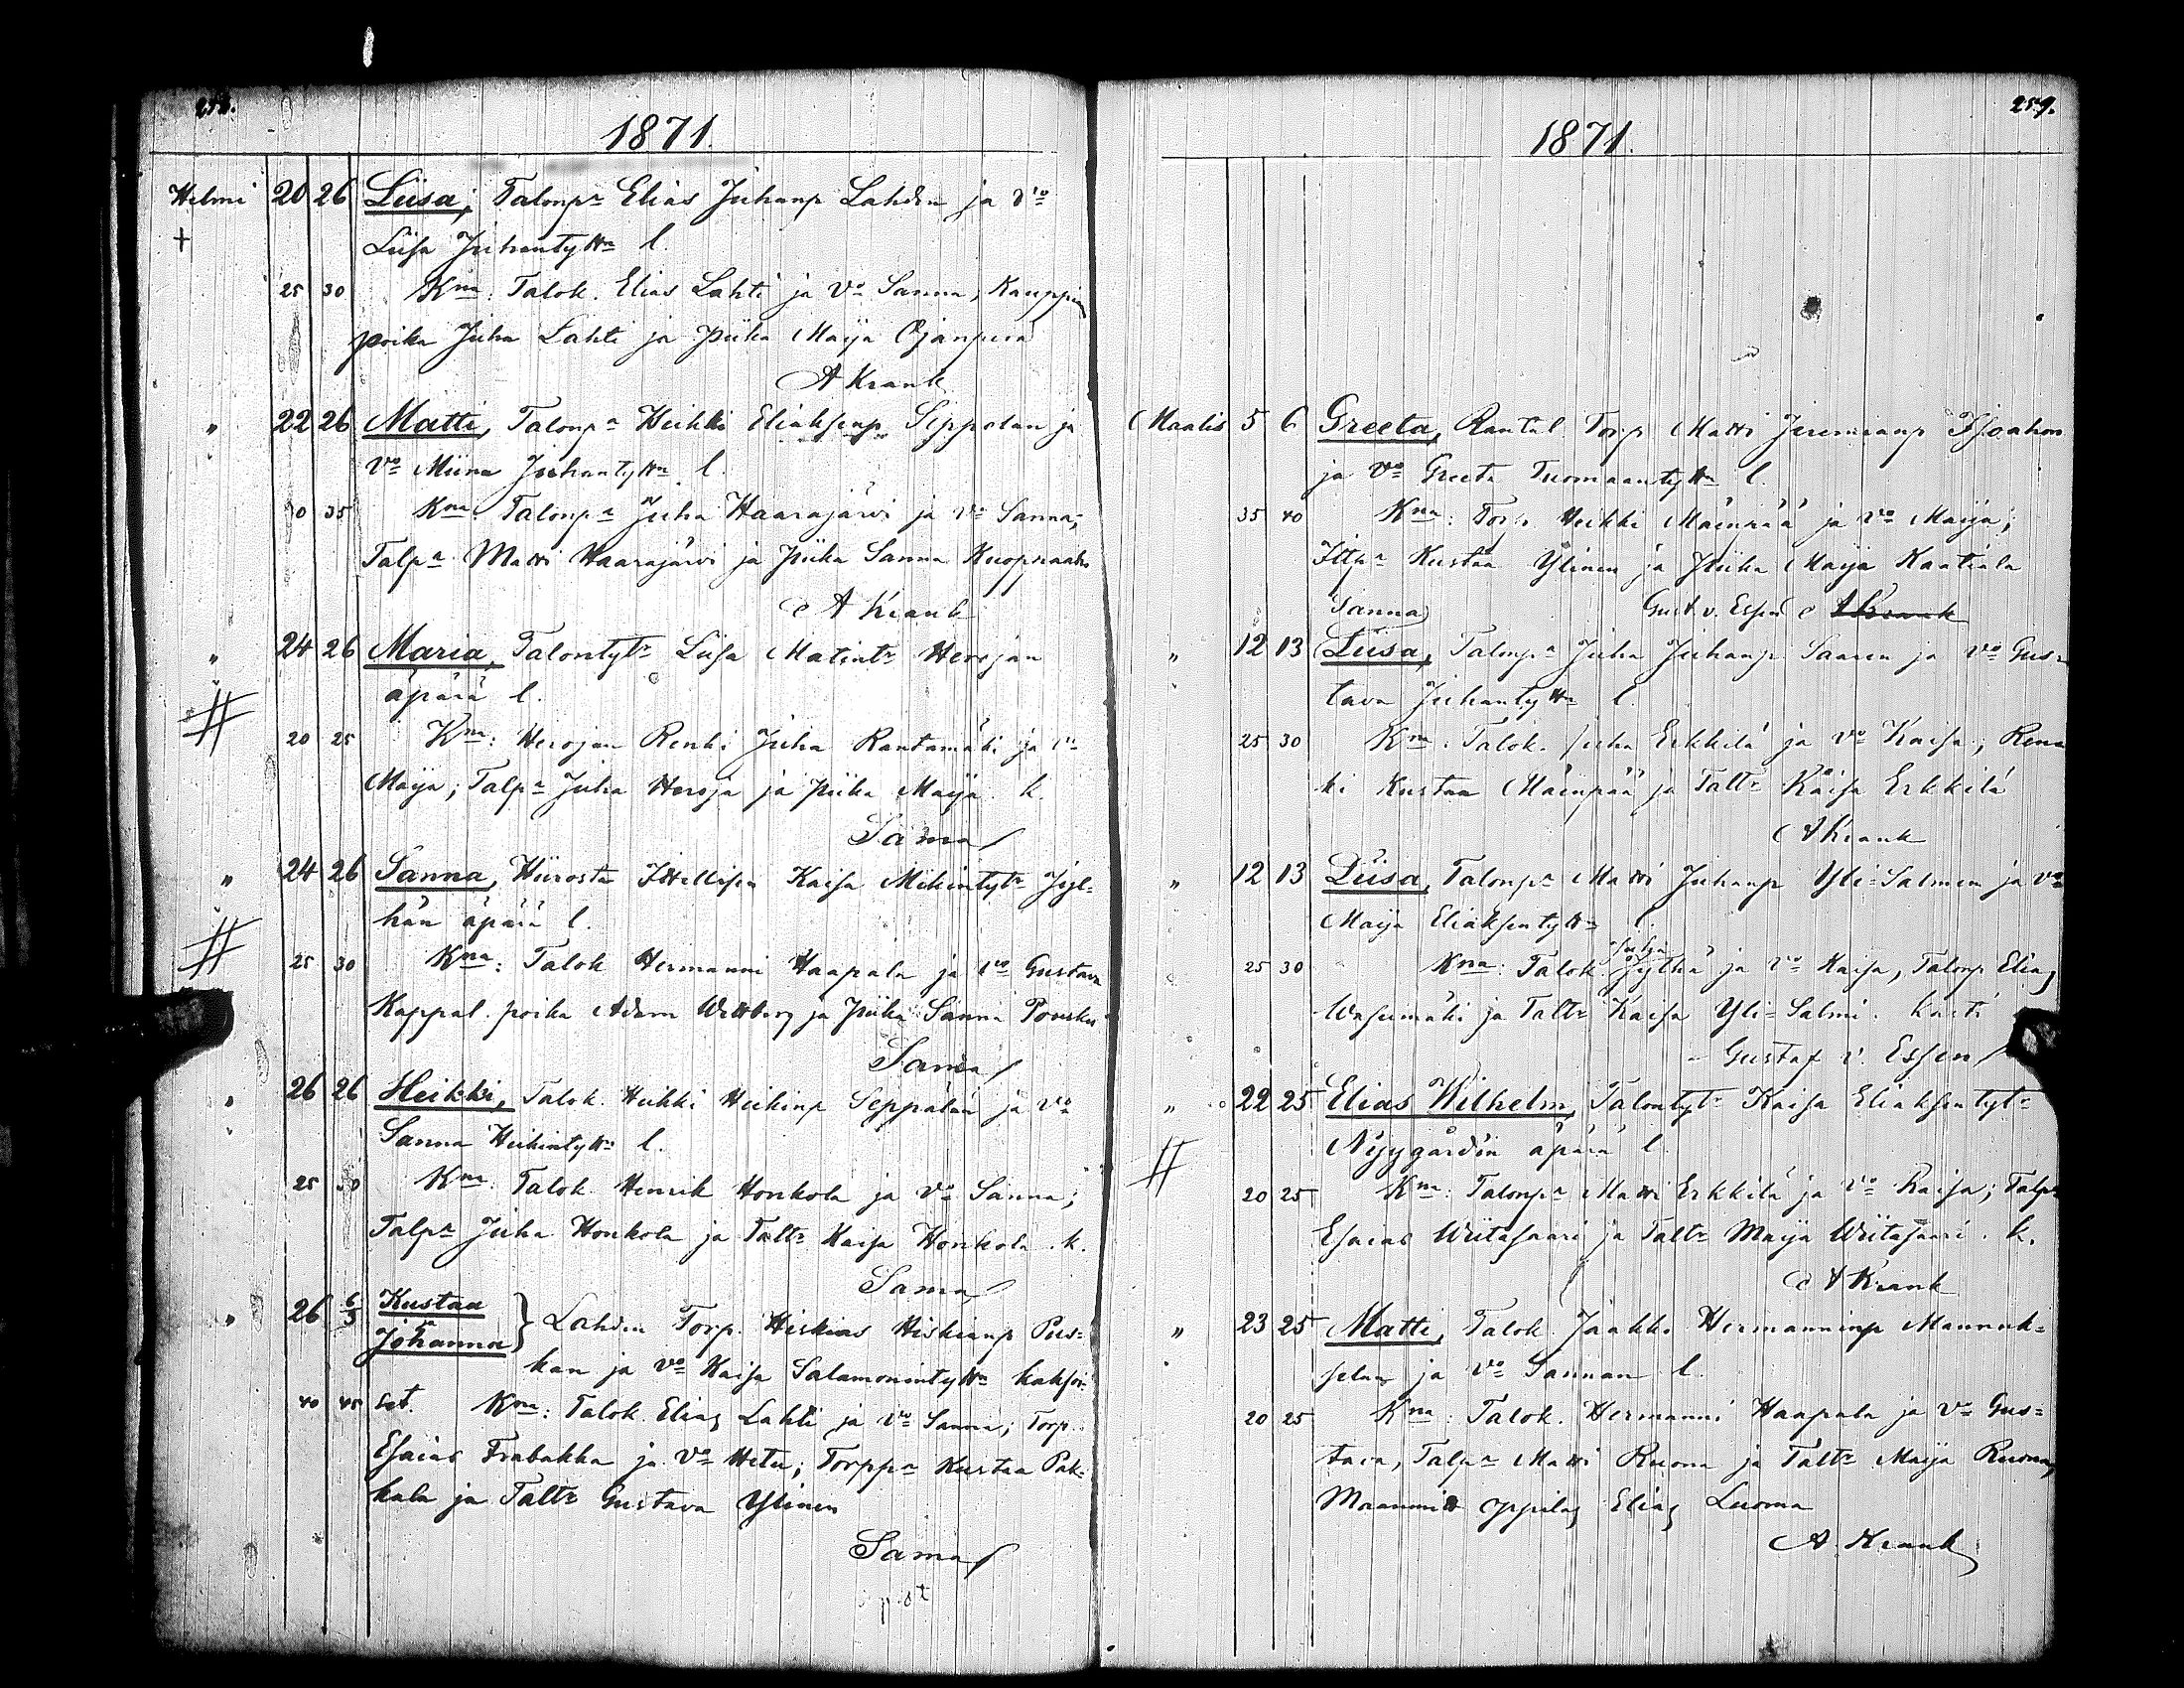 258.
1871.
Helmi 20 26 Liisa, Talonp:a Elias Juhanp Lahden ja V:o
+ Liisa Juhantyttn l.
25 30 Kna: Talok. Elias Lahti ja V:o Sanna, Kauppian
poika Juha Lahti ja piika Maija Ojanperä
A Krank
" 22 26 Matti, Talonp:a Heikki Eliaksenp Seppälän ja
V:o Miina Juhantyttn l.
30 35 Kna: Talonp:a Juha Haarajärvi ja V:o Sanna;
Talp:a Matti Haarajärvi ja piika Sanna
A Krank
" 24 26 Maria, Talontyt:r Liisa Matint:r Herojan
äpärä l.
20 25 Kna: Herojan Renki Juha Rantamäki ja V:o
Maija; Talp:a Juha Heroja ja piika Maija k.
Sama
" 24 26 Sanna, Hiirosta Ittellisen Kaisa Mikintyt:r Jyl-
hän äpärä l.
25 30 Kna: Talok Hermanni Haapala ja V:o Gustava
Kappal. poika Adam Wettberg ja piika Sanna
Sama
" 26 26 Heikki, Talok. Heikki Heikinp Seppälän ja V:o
Sanna Heikintyttn l.
25 30 Kna: Talok Henrik Honkola ja V:o Sanna;
Talp:a Juha Honkola ja Talt:r Kaisa Honkola. k.
Sama
" 26 6/3 Kustaa
ja
Johanna } Lahden Torp. Hiskias Hiskianp Pus-
kan ja V:o Kaisa Salamonintyttn kaksoi-
40 45 set. Kna: Talok. Elias Lahti ja V:o Sanna; Torp.
Esaias Frabakka ja V:o Hetu; Torpp:a Kustaa Pak-
kala ja Talt:r Gustava Ylinen
Sama
259.
1871.
Maalis 5 6 Greeta, Rantal. Torp Matti Jeremianp Isoahon
ja V:o Greeta Tuomaantyttn l.
35 40 Kna: Torp. Heikki Mäenpää ja V:o Maija;
Ittp:a Kustaa Ylinen ja piika Maija Kaatiala
Sanna Gust. v. Essen A Krank
" 12 13 Liisa, Talonp:a Juha Juhanp Saaren ja V:o Gus-
tava Juhantyttn l.
25 30 Kna: Talok. Juha Erkkilä ja V:o Kaisa; Ren-
ki Kustaa Mäenpää ja Talt:r Kaisa Erkkilä
A Krank
" 12 13 Liisa, Talonp:a Matti Juhanp Yli-Salmen ja V:o
Maija Eliaksentyttn l.
25 30 Kna: Talok. Jylhä ja V:o Kaisa, Talonp Elias
Wasumäki ja Talt:r Kaisa Yli-Salmi. kasti
Gustaf v. Essen
" 22 25 Elias Wilhelm, Talontyt:r Kaisa Eliaksentyt:r
Nygårdin äpärä l.
20 25 Kna: Talonp:a Matti Erkkilä ja V:o Kaisa; Talp:a
Esaias Wiitasaari ja Talt:r Maija Wiitasaari. k.
A Krank
" 23 25 Matti, Talok. Jaakko Hermanninp Mannuk-
selan ja V:o Sannan l.
20 25 Kna: Talok. Hermanni Haapala ja V:o Gus-
tava, Talp:a Matti Ruona ja Talt:r Maija Ruona,
Maanmitt oppilas Elias Luoma
A. Krank